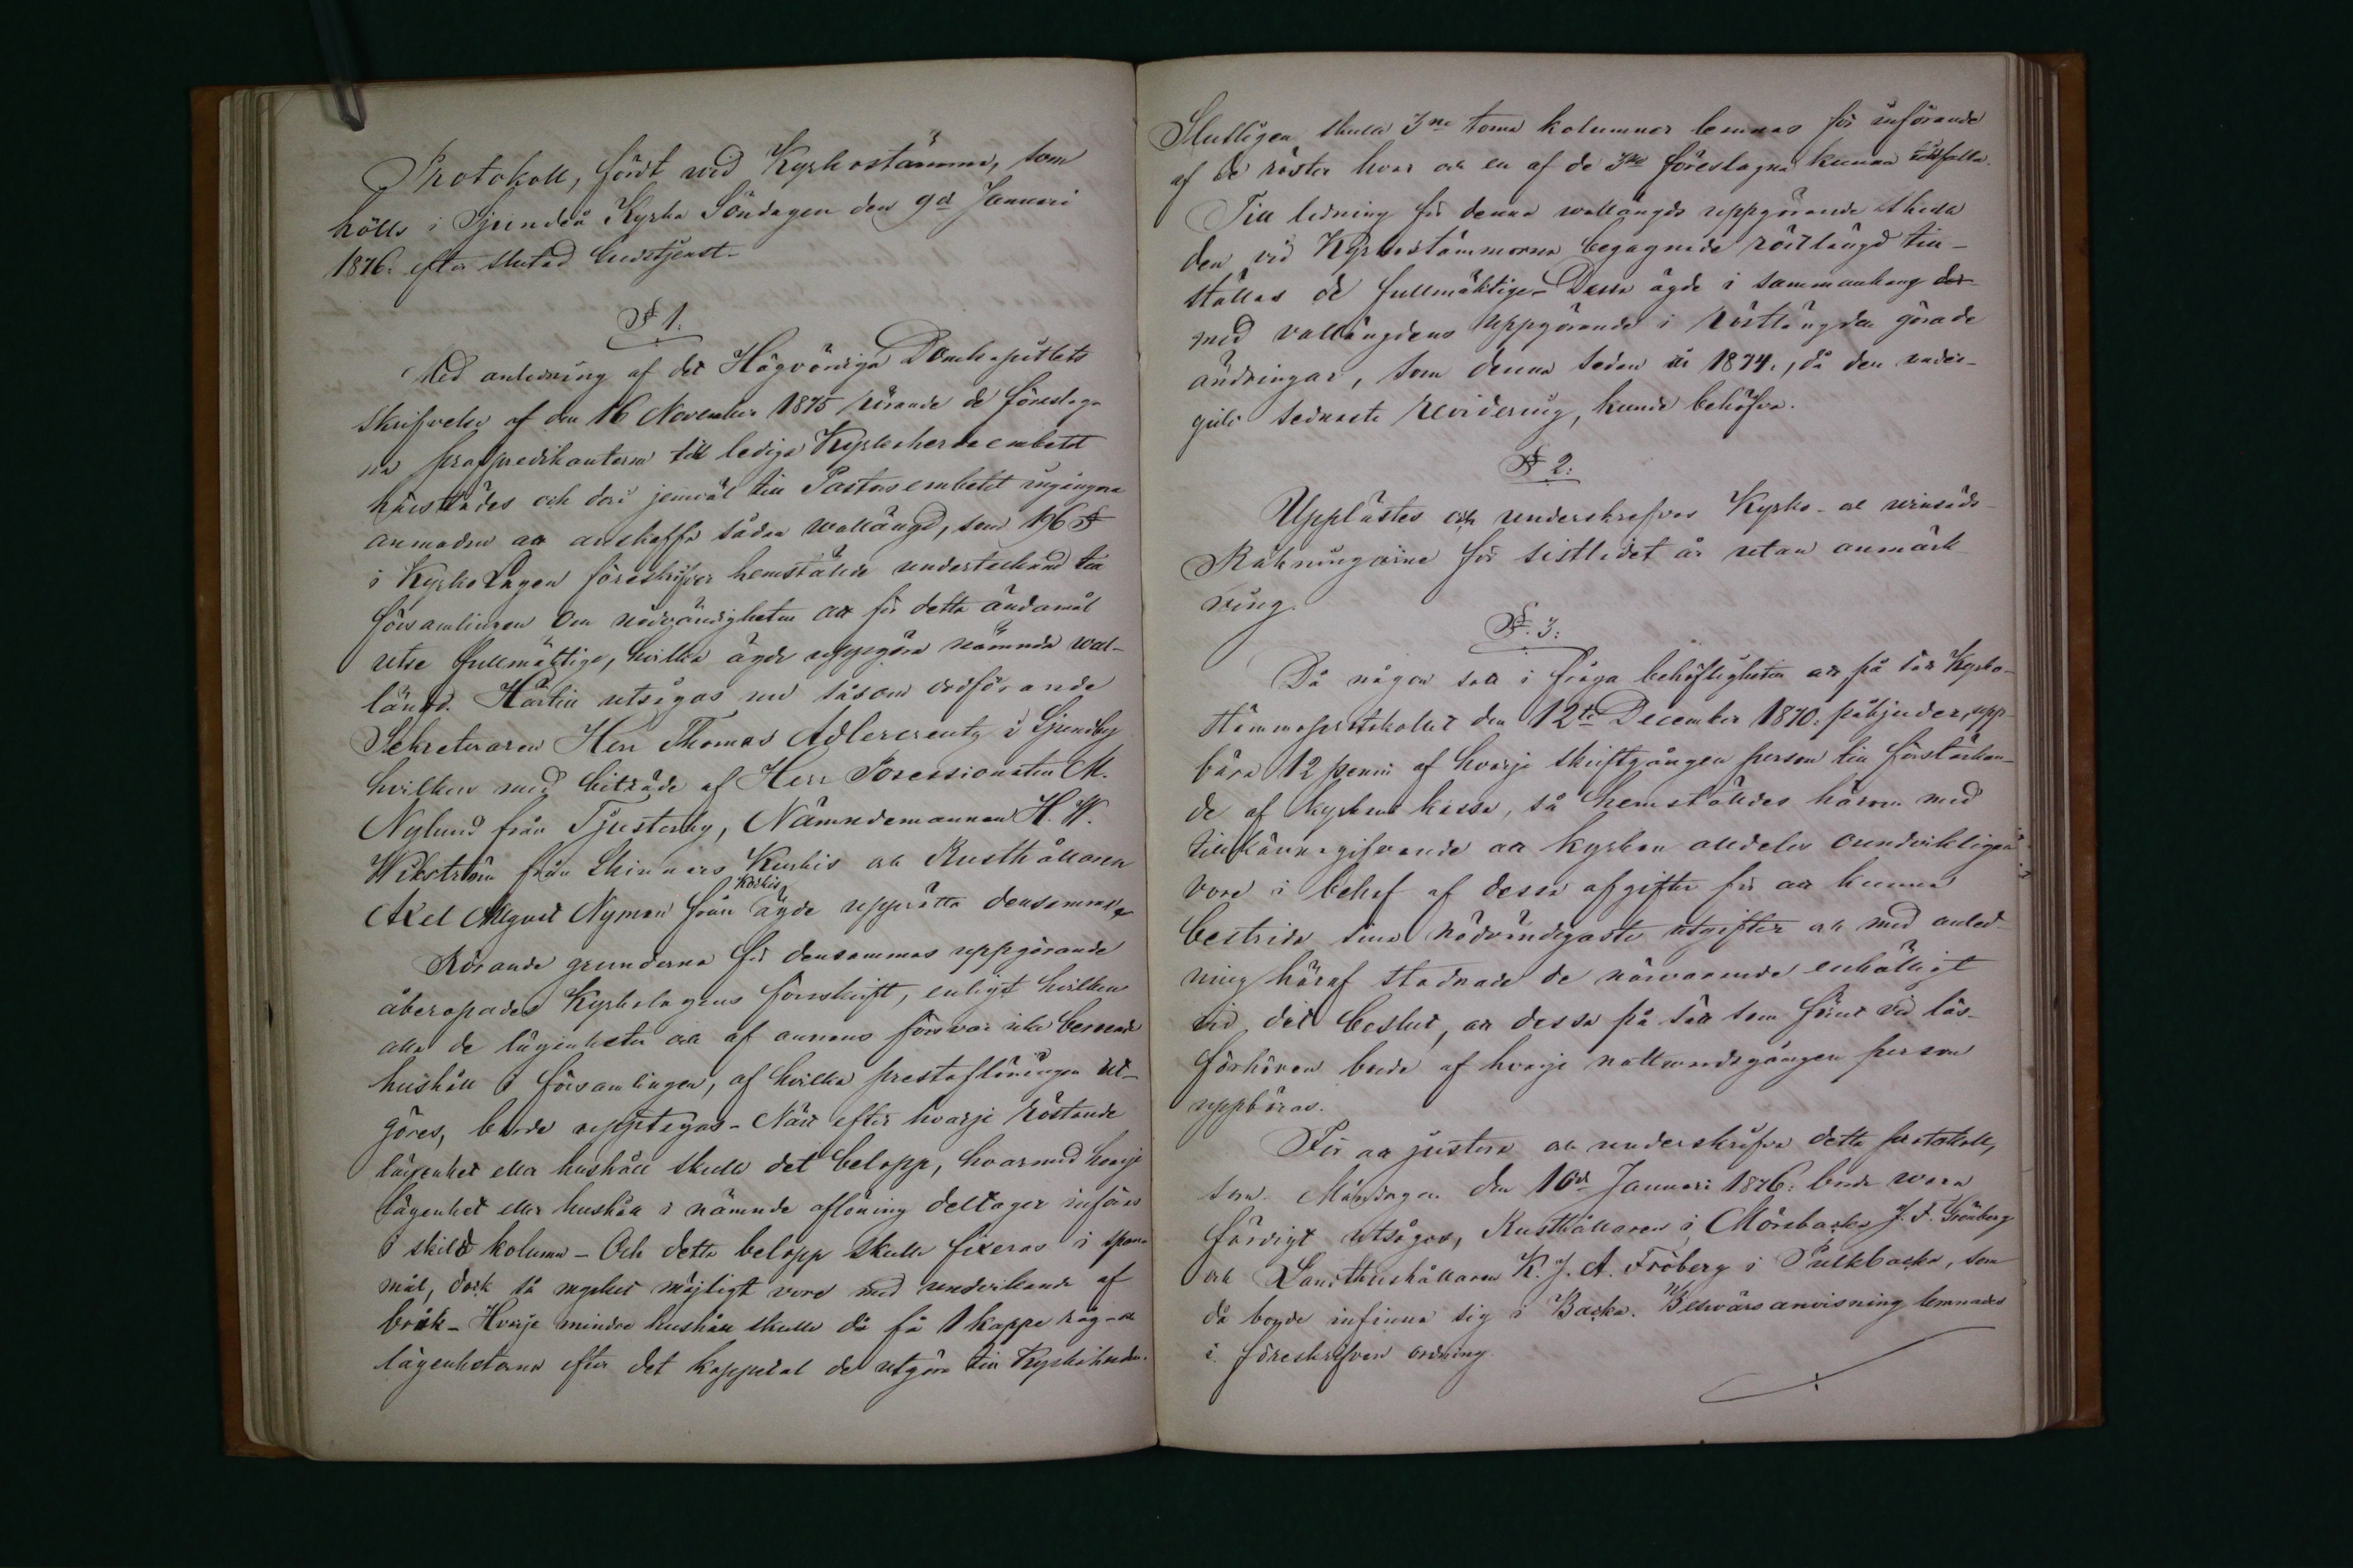 Protokoll, fördt wid Kyrkostämma, som
hölls i Sjundeå Kyrka Söndagen den 9de Januari
1876. efter slutad Gudstjenst.
§ 1.
Med anledning af det Högvördiga Domkapitlets
skrifvelse af den 16 November 1875 rörande de föreslag-
na profpredikanterna till lediga Kyrkoherdeembetet
härstädes och deri jemväl till Pastorsembetet ingångna
anmodan att anskaffa sådan wallängd, som 196 §
i KyrkoLagen föreskrifver hemstälde undertecknad till
församlingen om nödvändigheten att för detta ändamål
utse fullmäktige, hvilka ägde uppgöra nämnda wal-
längd. Härtill utsågos nu såsom ordförande
Sekreteraren Herr Thomas Adlercreutz i Sjundby
hvilken med biträde af Herr Possessionaten M.
Nylund från Tjusterby, Nämndemannen H. W.
Wikström från Skinnars Kurkis och Rusthållaren
Axel August Nyman från Korkis ägde upprätta densamma.
Rörande grunderna för densammas uppgörande
åberopades Kyrkolagens föreskrift, enligt hvilken
alla de lägenheter och af annans försvar icke beroende
hushåll i församlingen, af hvilka prestaflöningen ut-
göres, borde upptagas. När efter hvarje röstande
lägenhet eller hushåll skulle det belopp, hvarmed hvarje
lägenhet eller hushåll i nämnde aflöning deltager införas
i skild kolumn. Och detta belopp skulle fixeras i spann-
mål, dock så mycket möjligt vore med undvikande af
bråk. Hvarje mindre hushåll skulle då få 1 kappe råg och
lägenheterna efter det kappetal de utgöra till Kyrkoherden.
Slutligen skulle 3ne toma kolumner lemnas för införande
af de röster hvar och en af de 3ne föreslagna kunna tillfalla.
Till ledning för denna wallängds uppgörande skulle
den vid Kyrkostämmorna begagnade röstlängd till-
ställas de fullmäktige. Dessa ägde i sammanhang
med vallängdens uppgörande i röstlängden göra de
ändringar, som denna sedan år 1874., då den under-
gick sednaste revidering, kunde behöfva.
§ 2.
Upplästes och underskrefvos Kyrko- och
Räkningarne för sistlidet år utan anmärk-
ning.
§. 3.
Då någon satt i fråga behöfligheten att på sätt Kyrko-
stämmoprotokollet den 12te December 1870. påbjuder, upp-
bära 12 penni af hvarje skriftgången person till förstärkan-
de af kyrkans kassa, så hemstäldes härom med
tillkännagifvande att kyrkan alldeles oundvikligen
vore i behof af dessa afgifter för att kunna
bestrida sina nödvändigaste utgifter och med anled-
ning häraf stadnade de närvarande enhälligt
vid det beslut, att dessa på sätt som förut vid läs-
förhören borde af hvarje nattvardsgången person
uppbäras.
För att justera och underskrifva detta protokoll,
som Måndagen den 10de Januari 1876. borde wara
färdigt utsågos, Rusthållaren i Mörsbacka J. F. Grönberg
och Landthushållaren K. J. A. Fröberg i Pulkbacka, som
då borde infinna sig i Backa. Besvärsanvisning lemnades
i föreskrifven ordning.